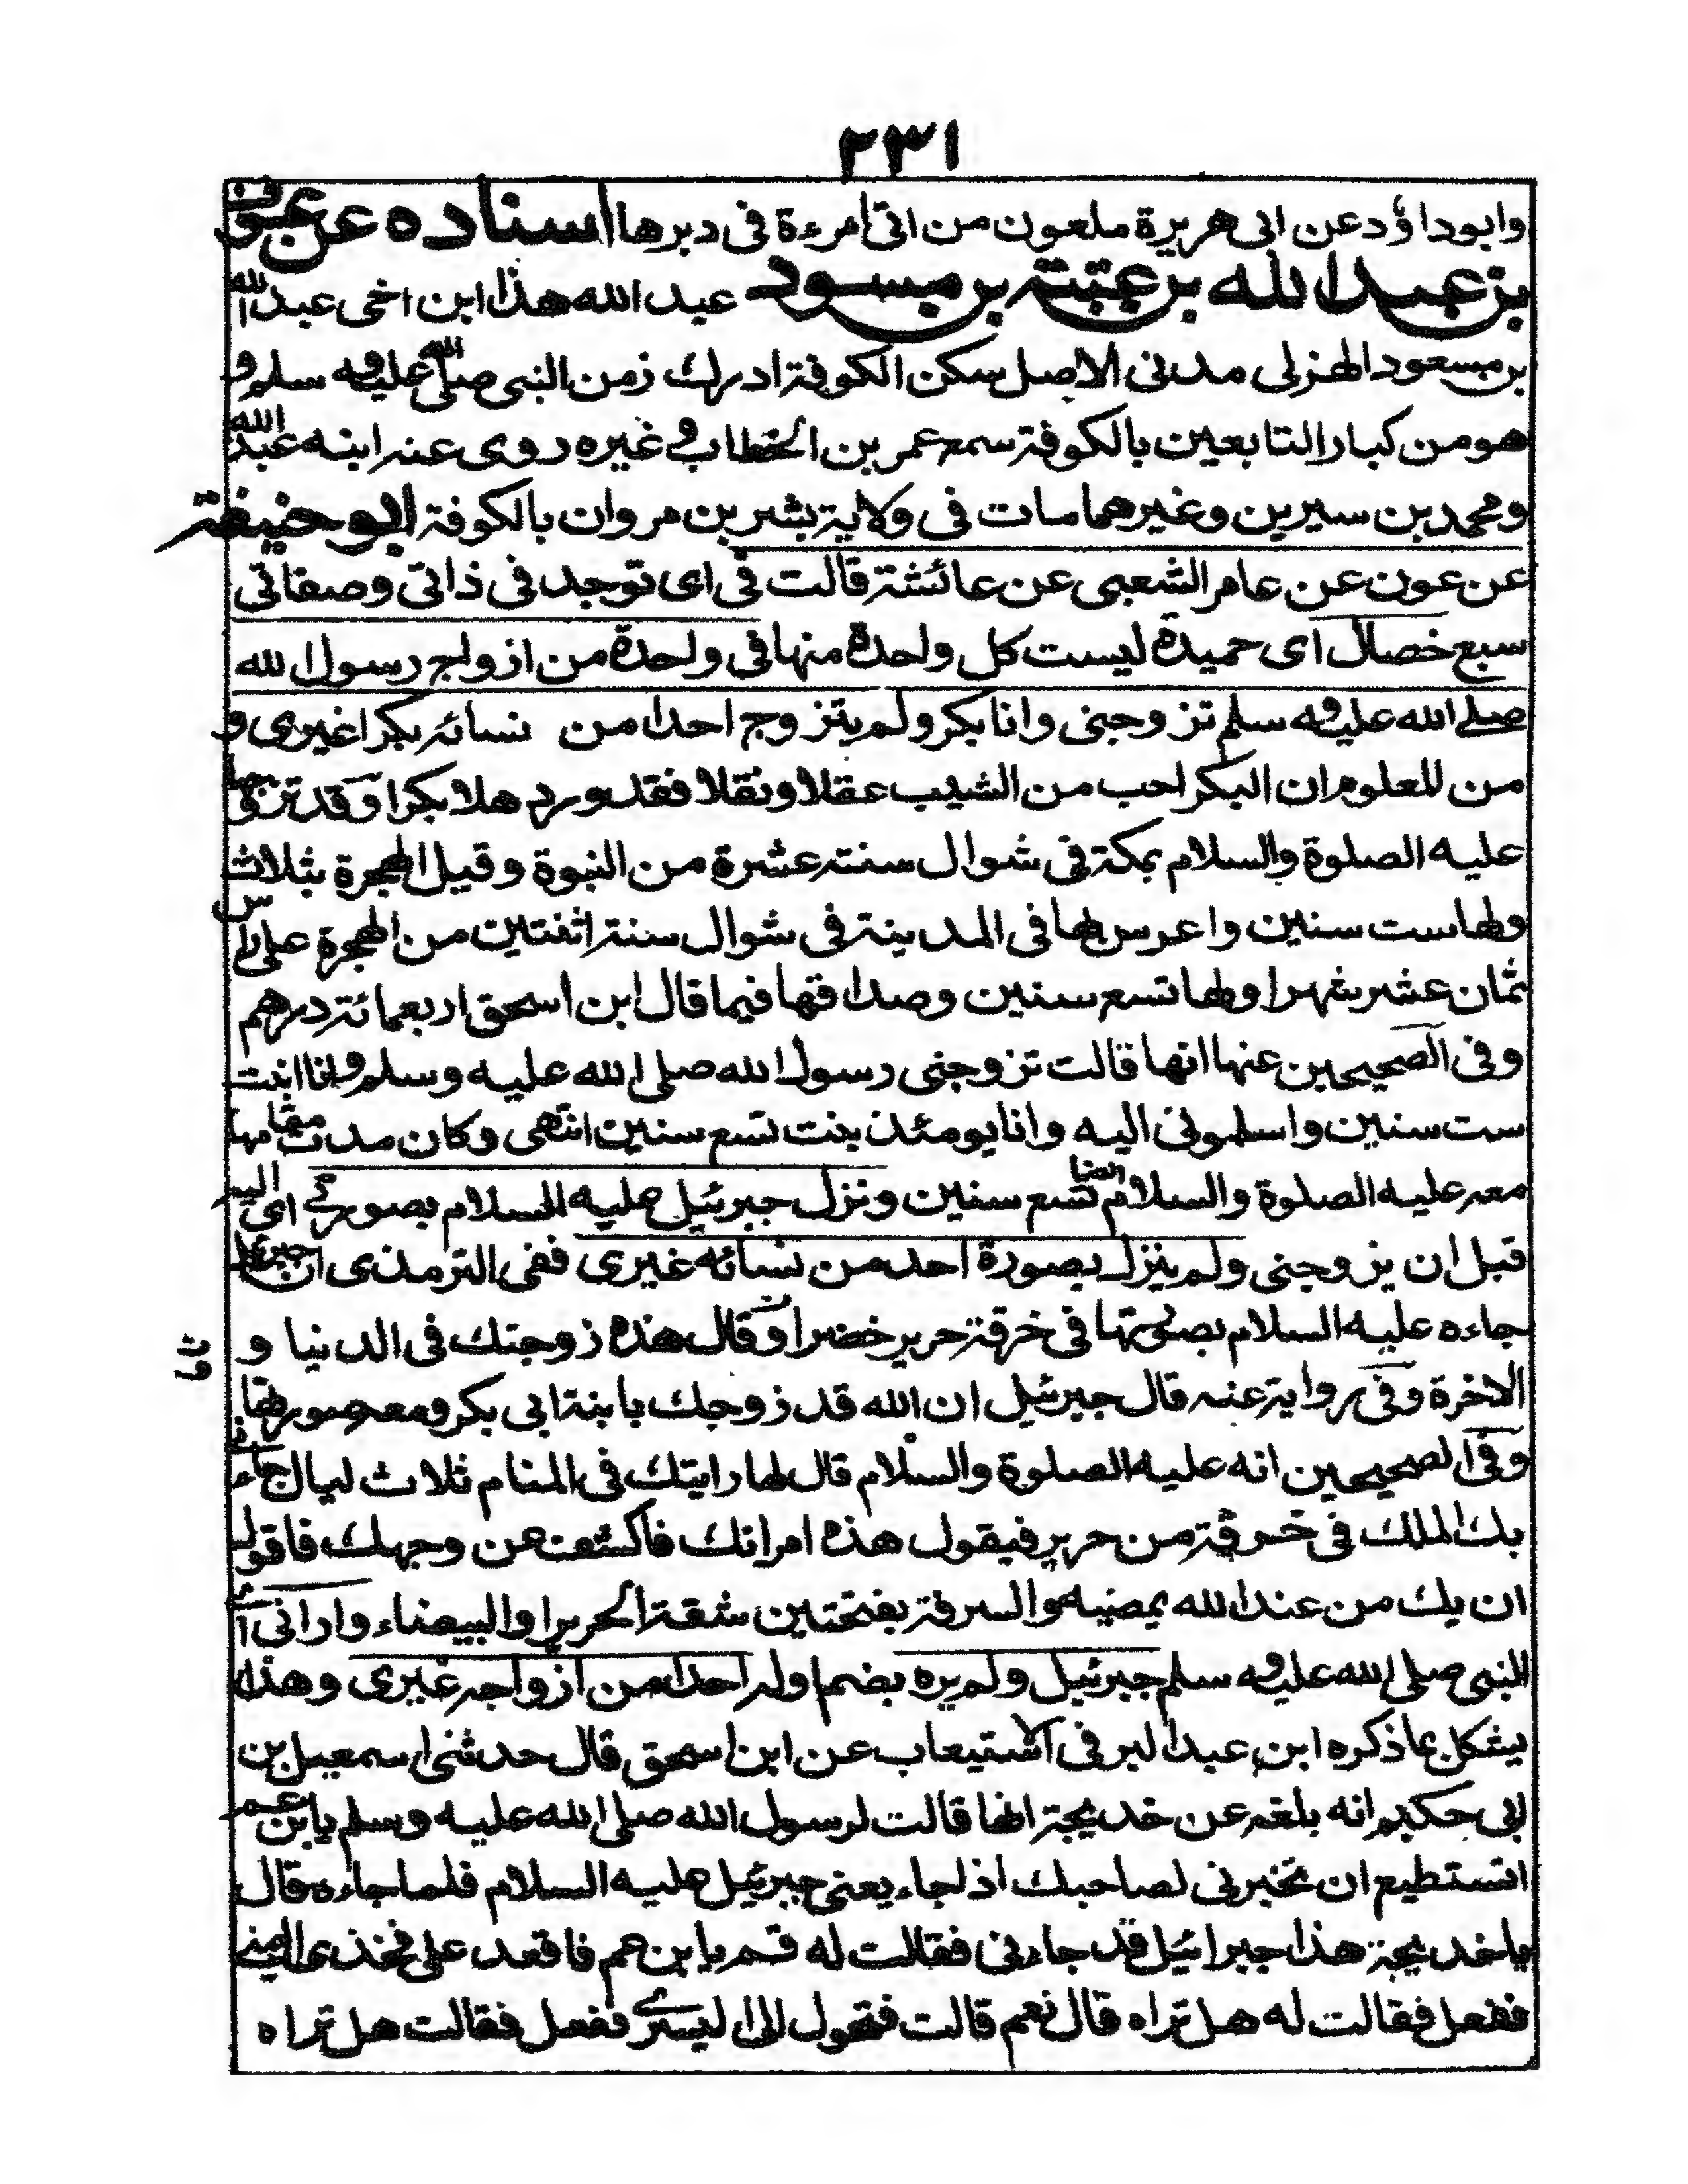 ٢٣١
وابوداؤد عن ابى هريرة ملعون من اتى امرءة فى دبرها اسناده عن عون
بن عبد الله بن عتبة بن مسود عبد الله هذا ابن اخى عبد الله
بن مسعود الهزلى مدنى الاصل سكن الكوفة ادرك زمن النبى صلى الله عليه وسلم و
هو من كبار التابعين بالكوفة سمع عمر بن الخطاب وغيره روى عنه ابنه عبد الله
ومحمد بن سيرين وغيرهما مات فى ولاية بشر بن مروان بالكوفة ابو حنيفة
عن عون عن عامر الشعبى عن عائشة قالت فى اى توجد فى ذاتى وصفاتى
سبع خصال اى حميدة ليست كل واحدة منها فى واحدة من ازواج رسول الله
صلى الله عليه وسلم تزوجنى وانا بكر ولم يتزوج احدا من نسائه بكرا غيرى و
من المعلوم ان البكر احب من الشيب عقلا ونقلا فقد ورد هلا بكرا وقد تزوجها
عليه الصلوة والسلام بمكة فى شوال سنة عشرة من النبوة وقيل الهجرة بثلاث
ولها ست سنين واعرس بها فى المدينة فى شوال سنة اثنتين من الهجرة على راس
ثمان عشر شهرا ولها تسع سنين وصداقها فيما قال ابن اسحق اربعمائة درهم
وفى الصحيحين عنها انها قالت تزوجنى رسول الله صلى الله عليه وسلم وانا ابنت
ست سنين واسلمونى اليه وانا يومئذ بنت تسع سنين انتهى وكان مدة مقامها
معه عليه الصلوة والسلام ايضا تسع سنين ونزل جبرئيل عليه السلام بصورتى اى اليه
قبل ان يزوجنى ولم ينزل بصورة احد من نسائه غيرى ففى الترمذى ان جبرئيل
جاءه عليه السلام بصورتها فى خرقة حرير خضراء وقال هذه زوجتك فى الدنيا و
الاخرة وفى رواية عنه قال جبرئيل ان الله قد زوجك بابنة ابى بكر ومعه صورتها
وفى الصحيحين انه عليه الصلوة والسلام قال لها رايتك فى المنام ثلاث ليال جاءنى
بك الملك فى خرقة من حرير فيقول هذه امراتك فاكشف عن وجهك فاقول
ان يك من عند الله يمضيه والسرقة بفتحتين شقة الحرير او البيضاء وارانى اى
النبى صلى الله عليه وسلم جبرئيل ولم يره بضم اوله احدا من ازواجه غيرى وهذا
يشكل بما ذكره ابن عبد البر فى الاستيعاب عن ابن اسحق قال حدثنى اسمعيل بن
ابى حكيم انه بلغه عن خديجة انها قالت لرسول الله صلى الله عليه وسلم يا ابن عم
اتستطيع ان تخبرنى لصاحبك اذا جاء يعنى جبرئيل عليه السلام فلما جاءه قال
يا خديجة هذا جبرائيل قد جاءنى فقالت له قم يا ابن عم فاقعد على فخذى اليمنى
ففعل فقالت له هل تراه قال نعم قالت فتحول الى اليسرى ففعل فقالت هل تراه